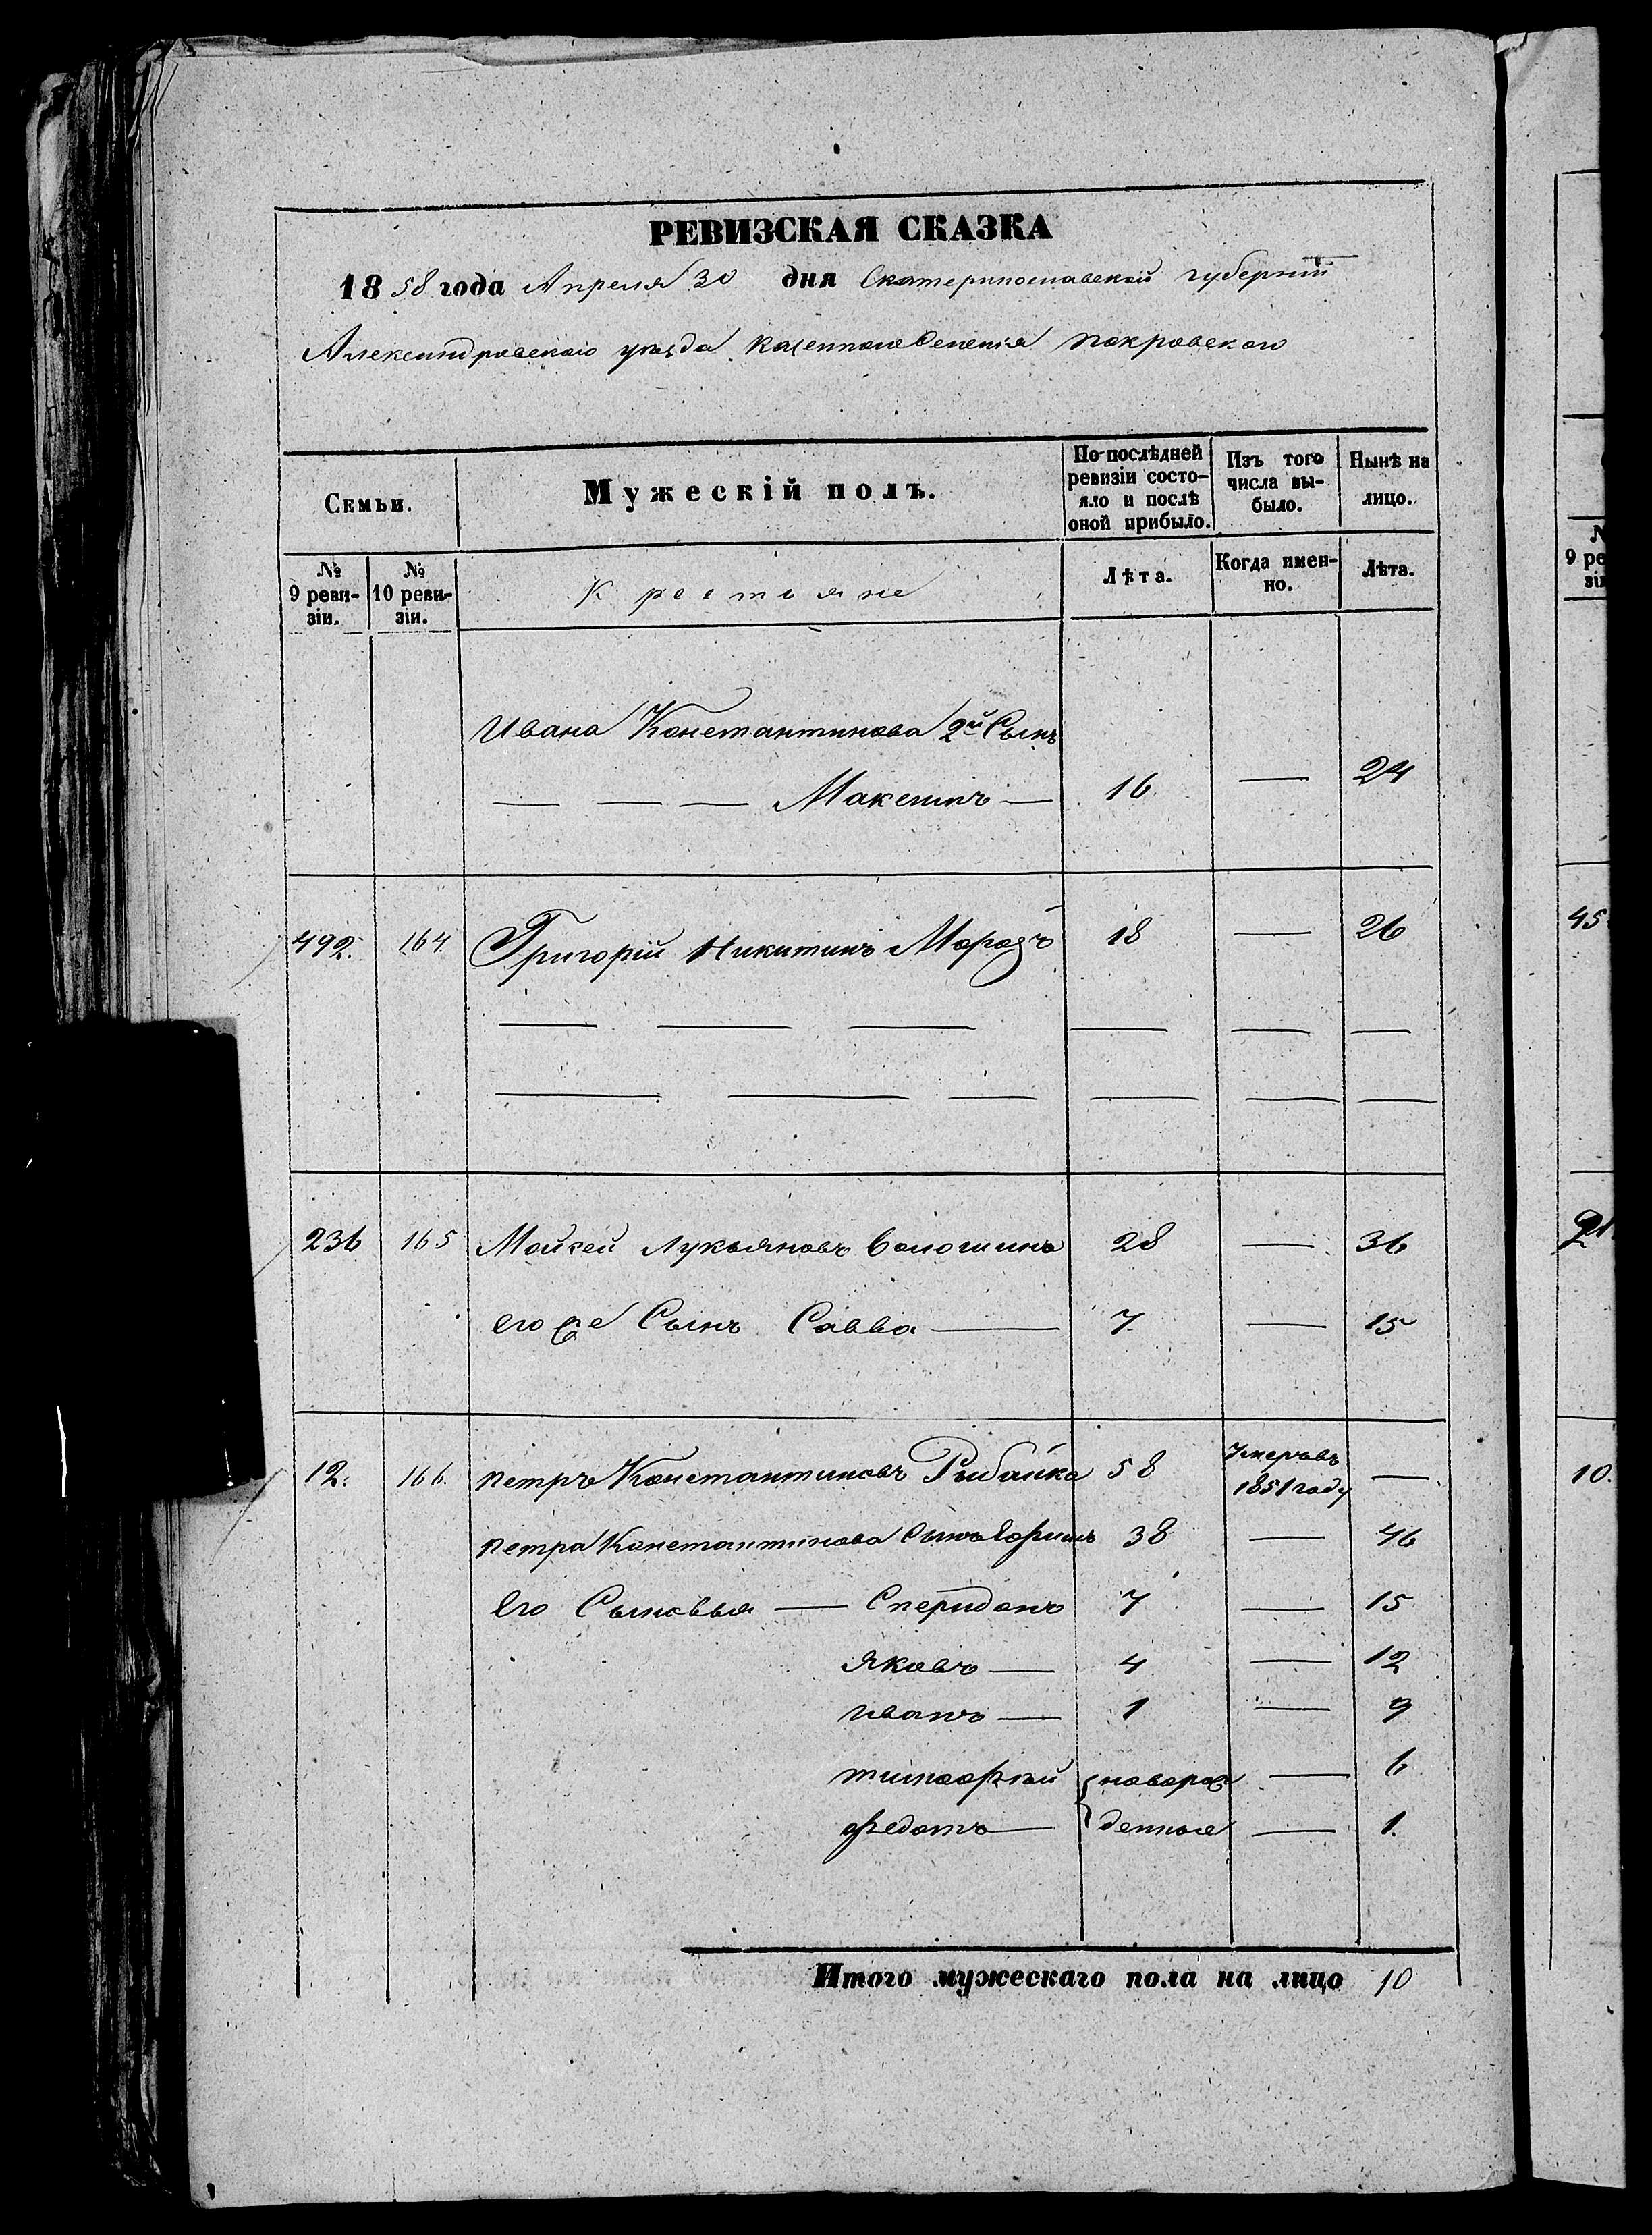 РЕВИЗСКАЯ СКАЗКА
1858 года Апреля 30 дня Екатеринославской губерніи
Александровскаго уѣзда казеннаго Селенія покровскаго
Семьи.
Мужескій полъ.
По послѣдней ревизіи состо-
яло и послѣ
оной прибыло.
Изъ того
числа вы-
было.
Нынѣ на
лицо.
№
9 реви-
зіи.
№
10 реви-
зіи.
Крестьяне
Лѣта.
Когда имен-
но.
Лѣта.
Ивана Константинова 2й Сынъ
— — — Максимъ — 16 — 24
492. 164. Григорій Никитинъ Морозъ 18 — 26
— — — — — —
— — — — — —
236 165 Мойсей Лукьяновъ Волошинъ 28 — 36
его же Сынъ Савва — 7. — 15
12. 166. петръ Константиновъ Рыбалка 58 Умеръ въ 1851 году —
петра Константинова Сынъ Ефимъ 38 — 46
Его Сыновья — Спиридонъ 7 — 15
Яковъ — 4 — 12
иванъ — 1 — 9
тимофѣй { новорож — 6
федотъ — денные — 1.
Итого мужескаго пола на лицо 10
№
9 ре
зіи
45
21
10.